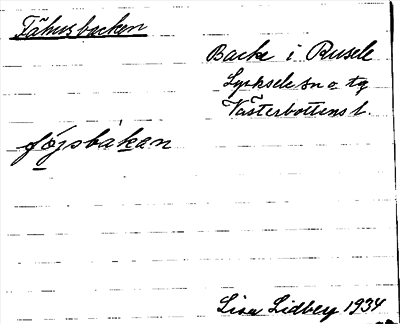 Fähusbacken
Backe i Rusele
Lycksele sn o tg
Västerbottens l.
fǫ́jsbàkan
Lisa Lidberg 1934